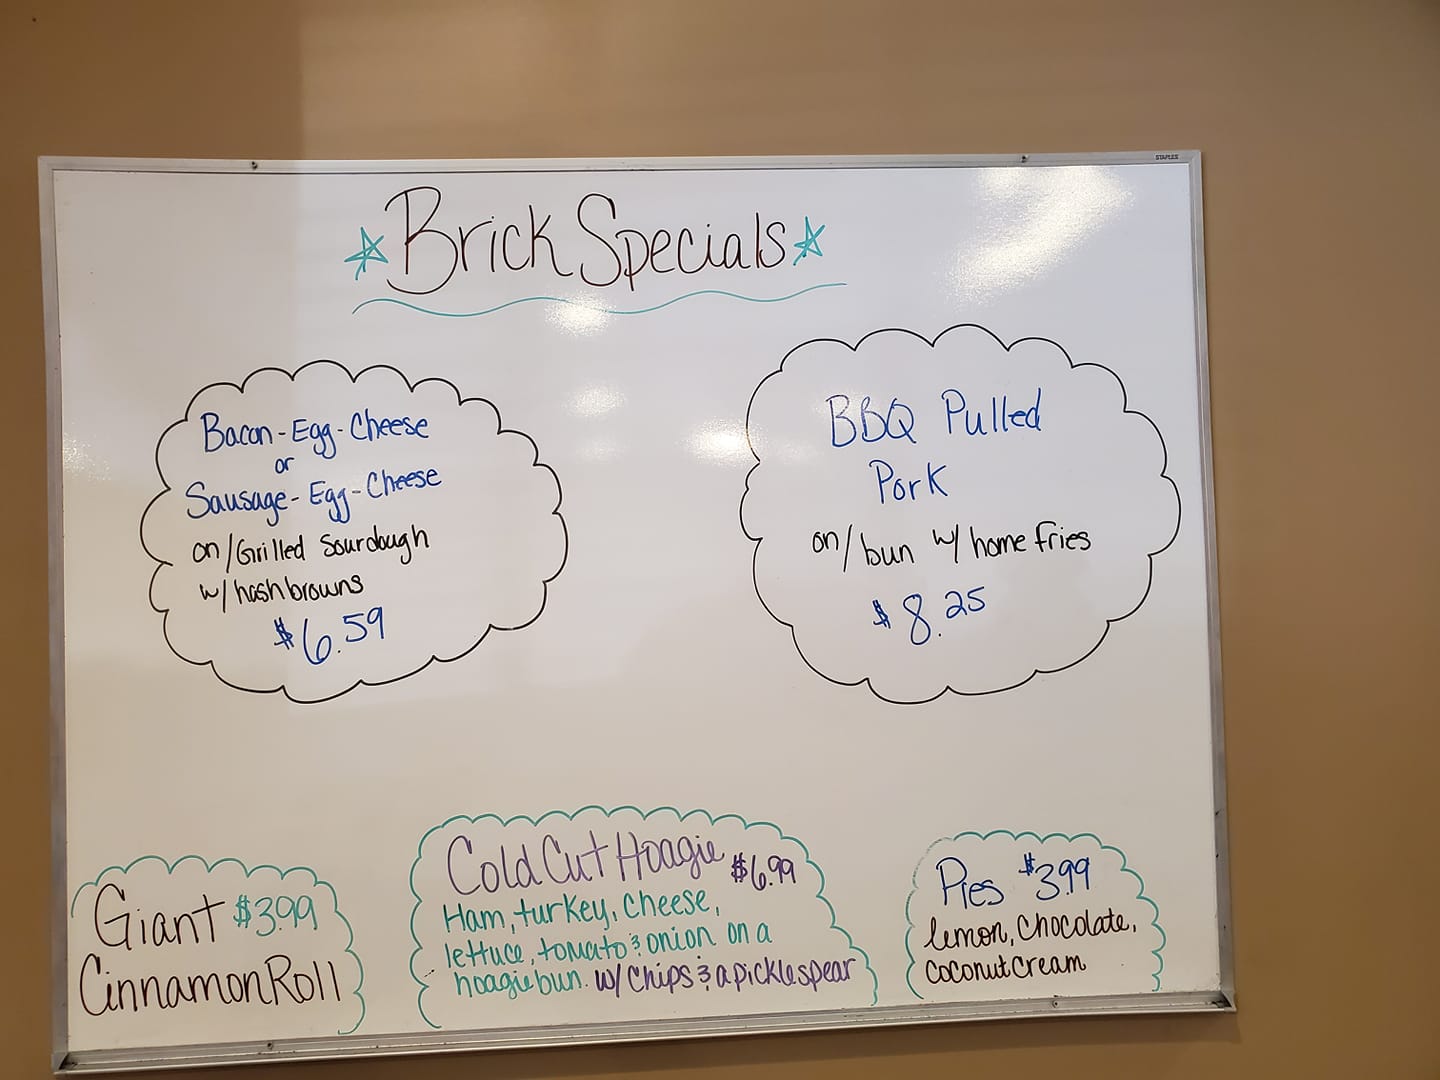 STAPLES
Brick Specials
Bacon-Egg-Cheese
or
Sausage-Egg-Cheese
on/Grilled Sourdough
w/hashbrowns
$6.59
BBQ Pulled
Pork
on/bun w/home fries
$8.25
Giant $3.99
Cinnamon Roll
Cold Cut Hoagie $6.99
Ham, turkey, cheese,
lettuce, tomato & onion on a
hoagie bun. w/ chips & a pickle spear
Pies $3.99
lemon, chocolate,
coconut cream